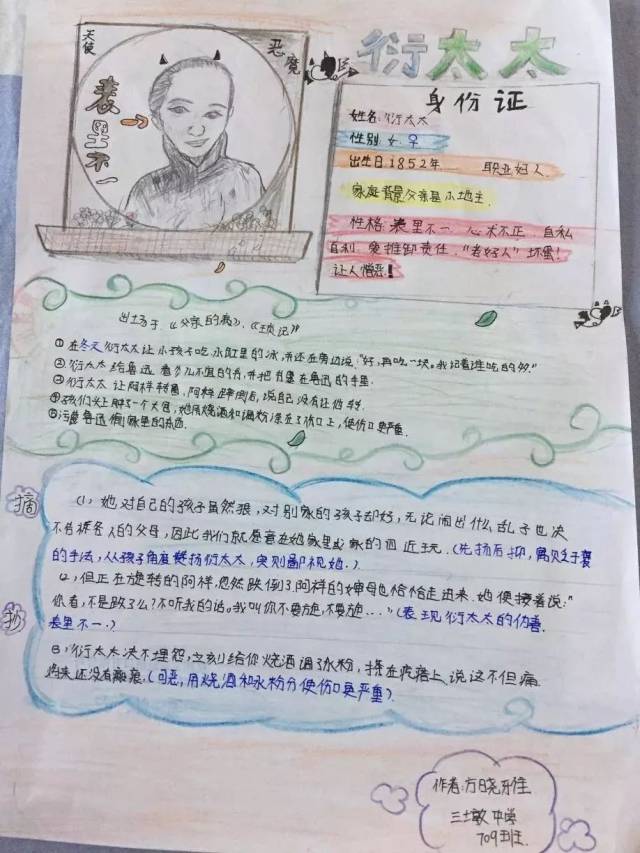 衍太太
天使
恶魔
表里不一
身份证
姓名:衍太太
性别:女 ♀
出生日1852年 职业妇人
家庭背景父亲是小地主.
性格:表里不一 心术不正 自私
自利.爱推卸责任."老好人"坏蛋!
让人憎恶!
出场于《父亲的病》、《琐记》
①在冬天衍太太让小孩子吃水缸里的冰,并还在旁边说:"好,再吃一块。我记着谁吃的多。"
②衍太太给鲁迅看少儿不宜的书,并把书塞在鲁迅的手里.
③衍太太让阿祥转圈,阿祥跌倒后,说自己没有让他转.
④孩们头上肿了一个大包,她用烧酒和调粉涂在了伤口上,使伤口更严重.
⑤污蔑鲁迅偷家里的东西.
摘
抄
(1)她对自己的孩子虽然狠,对别家的孩子却好,无论闹出什么乱子也决
不告诉各人的父母,因此我们就愿意在她家里或家的四近玩.(先扬后抑,寓贬于褒
的手法,从孩子角度赞扬衍太太,实则鄙视她.)
(2)但正在旋转的阿祥忽然跌倒了.阿祥的婶母也恰恰走进来.她便接着说:"
你看,不是跌了么?不听我的话。我叫你不要旋,不要旋..."(表现衍太太的伪善.
表里不一.)
(3)衍太太决不埋怨,立刻给你烧酒调了水粉,搽在疙瘩上,说这不但痛
将来还没有瘢痕.(可恶,用烧酒和水粉分使伤口更严重)
作者:方晓雅
中学
709班.